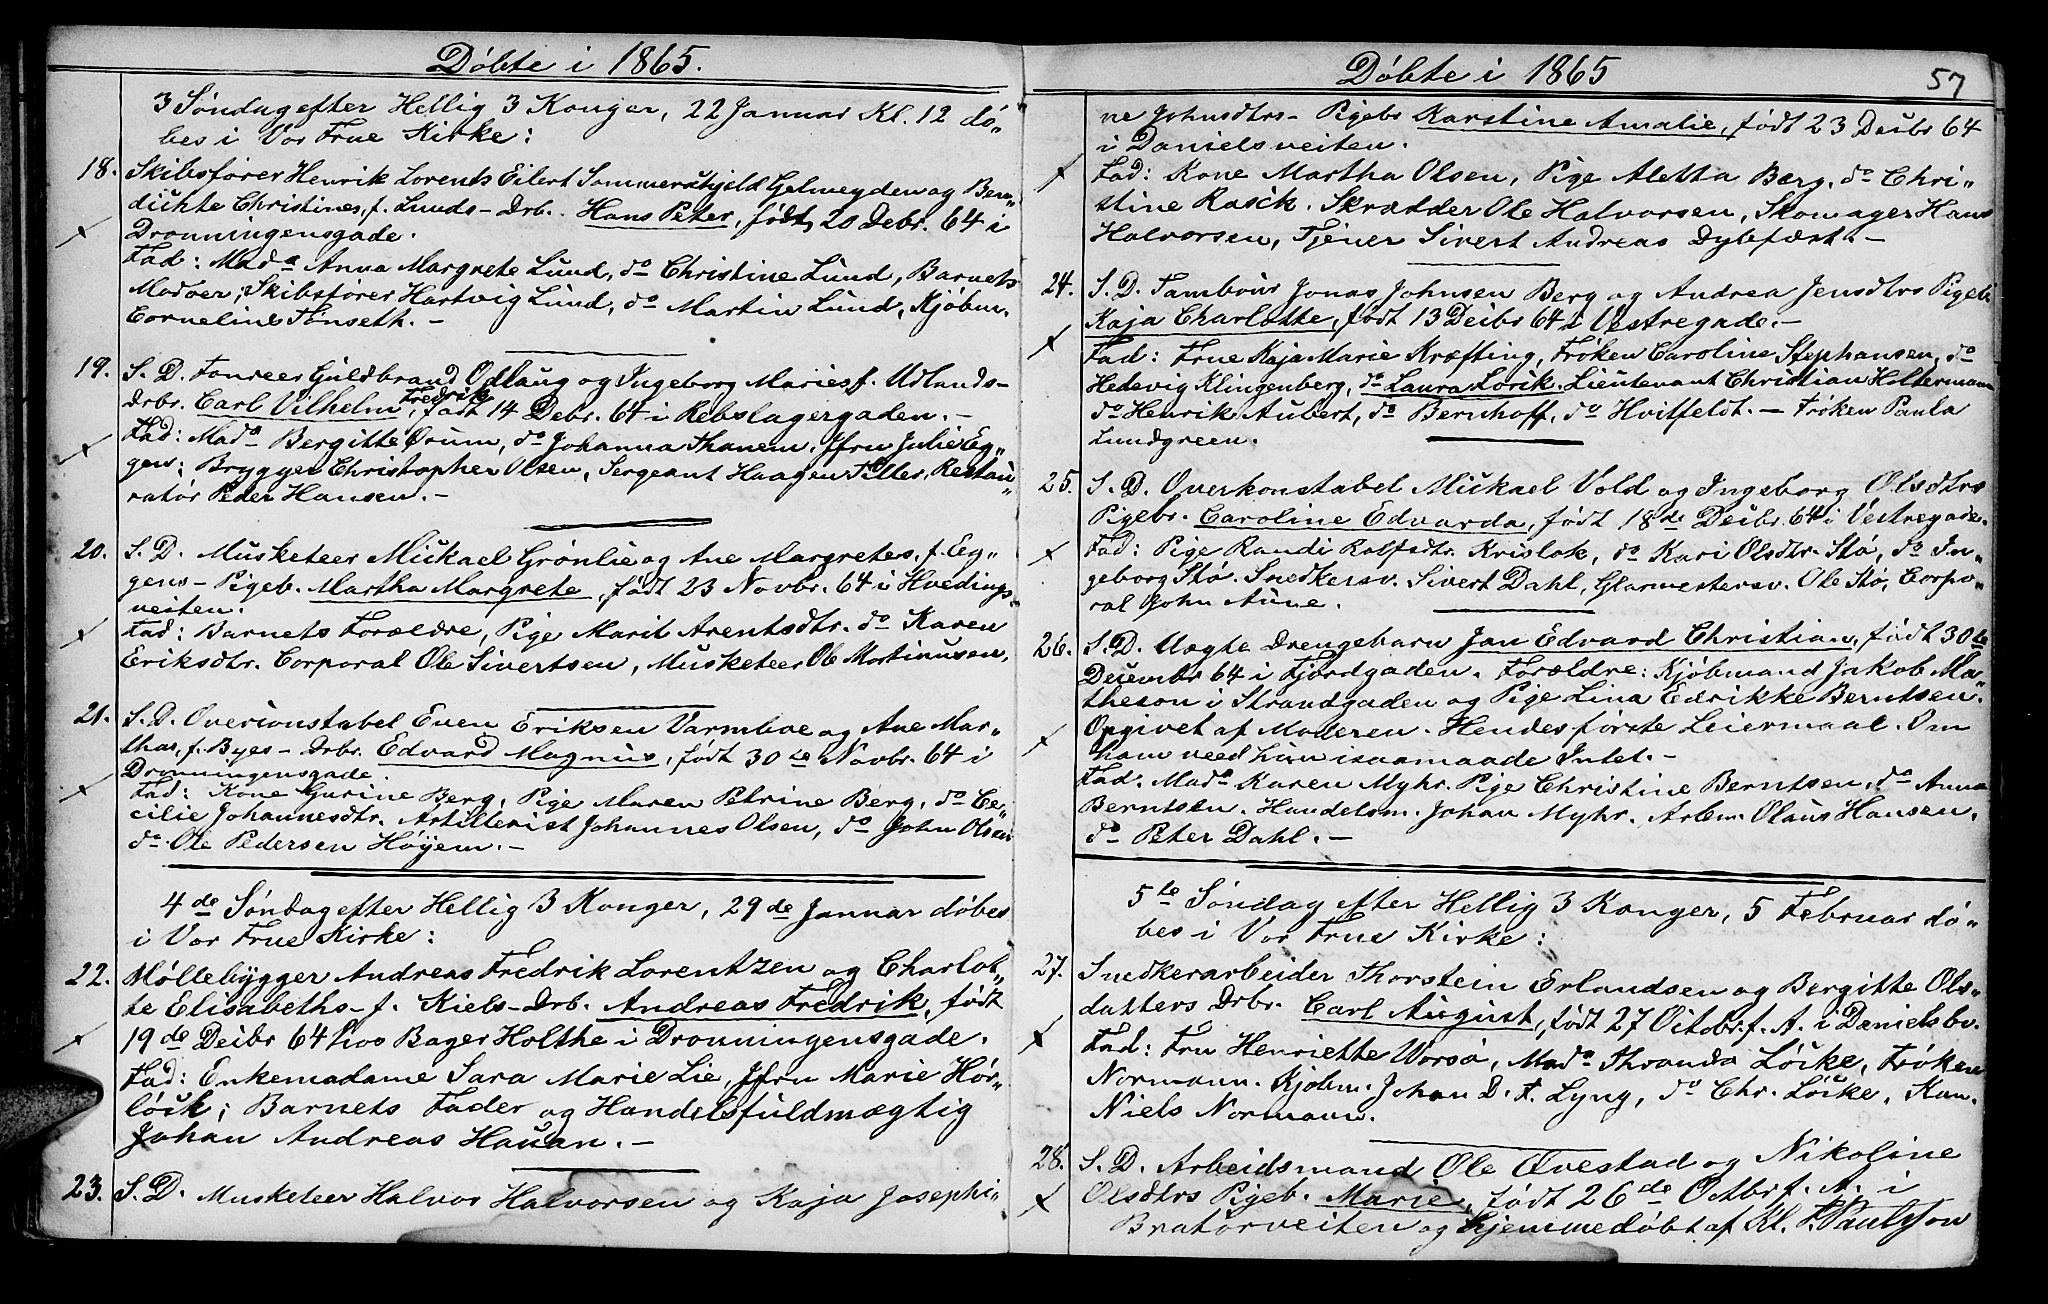 Döbte i 1865.
3 Söndag efter Hellig 3 Konger, 22 Januar Kl. 12 dö-
bes i Vor Frue Kirke:
18. Skibsförer Henrik Lorents Eilert Sommerschjeld Gelmeyden og Ben-
dichte Christines, f. Lunds - Drb. Hans Peter, födt 20 Debr. 64 i
Dronningensgade.
Fad: Mada Anna Margrete Lund, do Christine Lund, Barnets
Moder; Skibsförer Hartvig Lund, do Martin Lund, Kjöbm.
Cornelius Tönseth. -
19. S. D. Foureer Guldbrand Odlaug og Ingeborg Maries f. Udlands-
Drbr. Carl Vilhelm Fredrik, födt 14 Debr. 64 i Rebslagergaden. -
Fad: Mada Bergitte Örum, do Johanna Thanem, Jfru Julie Eg-
gen; Brygger Christopher Olsen, Sergeant Haagen Tiller, Restau-
ratör Peder Hansen. -
20. S. D. Musketeer Mickael Grönlie og Ane Margretes, f. Eg-
gens - Pigeb. Martha Margrete, födt 23 Novbr. 64 i Hvedings-
veiten.
Fad: Barnets Forældre, Pige Marit Arentsdtr. do Karen
Eriksdtr. Corporal Ole Sivertsen, Musketeer Ole Martinusen.
21. S. D. Overconstabel Even Eriksen Varmboe og Ane Mar-
thas, f. Byes - Drbr. Edvard Magnus, födt 30te Novbr. 64 i
Dronningensgade.
Fad: Kone Gurine Berg, Pige Maren Petrine Berg, do Ce-
cilie Johannesdtr. Artillerist Johannes Olsen, do John Olsen
do Ole Pedersen Höyem. -
4de Söndag efter Hellig 3 Konger, 29de Januar döbes
i Vor Frue Kirke:
22. Möllebygger Andreas Fredrik Lorentzen og Charlot-
te Elisabeths - f. Kiels - Drb. Andreas Fredrik, födt
19de Decbr 64 hos Bager Holthe i Dronningensgade.
Fad: Enkemadame Sara Marie Lie, Jfru Marie Hör-
löck; Barnets Fader og Handelsfuldmægtig
Johan Andreas Hauan. -
23. S. D. Musketeer Halvor Halvorsen og Kaja Josephi-
Döbte i 1865
57
ne Johnsdtrs - Pigebr Karstine Amalie, födt 23 Decbr 64
i Danielsveiten.
Fad: Kone Martha Olsen, Pige Aletta Berg, do Chri-
stine Rasch. Skrædder Ole Halvorsen, Skomager Hans
Halvorsen, Tjener Sivert Andreas Dybfæst. -
24. S. D. Tambour Jonas Johnsen Berg og Andrea Jensdtrs Pigeb.
Kaja Charlotte, födt 13 Decbr 64 i Vestregade. -
Fad: Frue Kaja Marie Kræfting, Fröken Caroline Stephansen, do
Hedevig Klingenberg, do Laura Lorck. Lieutenant Christian Holtermann
do Henrik Aubert, do Bernhoff, do Hvitfeldt. - Fröken Paula
Lundgreen.
25. S. D. Overkonstabel Mickael Vold og Ingeborg Olsdtrs
Pigebr. Caroline Edvarda, födt 18de Decbr. 64 i Vestregade.
Fad: Pige Randi Rolfsdtr. Krislok, do Kari Olsdtr. Stö, do In-
geborg Stö. Snedkersv. Sivert Dahl, Glarmestersv. Ole Stö, Corpo-
ral John Aune.
26. S. D. Uægte Drengebarn Jan Edvard Christian, födt 30te
Decembr 64 i Fjordgaden. Forældre: Kjöbmand Jakob Ma-
theson i Strandgaden og Pige Lina Edrikke Berntsen.
Opgivet af Moderen. Hendes förste Leiermaal. Om
ham veed hun isaamaade Intet. -
Fad. Mada Karen Myhr. Pige Christine Berntsen, do Anna
Berntsen. Handelsm. Johan Myhr. Arbm. Olaus Hansen.
do Peter Dahl. -
5te Söndag efter Hellig 3 Konger, 5 Februar dö-
bes i Vor Frue Kirke:
27. Snedkerarbeider Thorstein Erlandsen og Bergitte Ols-
datters Drbr. Carl August, födt 27 Octobr. f. A. i Danielsbv.
Fad: Fru Henriette Worsö, Mada Thranda Löcke, Fröken
Normann. Kjöbm. Johan D. F. Lyng, do Chr. Löcke, Kan.
Niels Normann.
28. S. D. Arbeidsmand Ole Øvestad og Nikoline
Olsdtrs Pigeb. Marie, födt 26de Octbr. f. A. i
Bratörveiten og hjemmedöbt af Kl. P. Paulsson